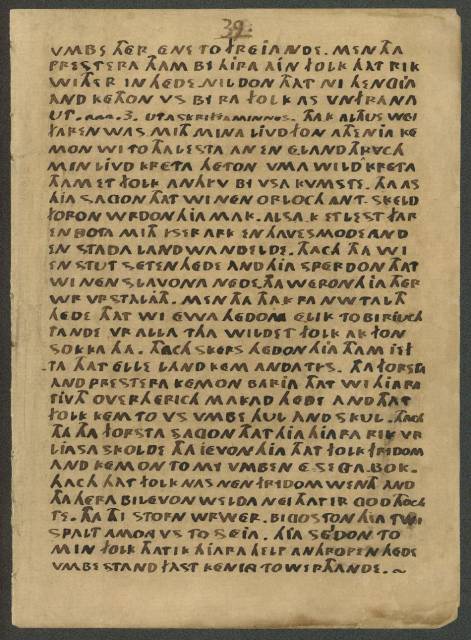 39.
VMBE THER ENE TO FREIANDE. MEN THA
PRESTERA THAM BI HIRA AIN FOLK HAT RIK
WITHER IN HEDE. NILDON THAT NI HENGIA
AND KETHON VS BI RA FOLK AS VNTRANA
UT. 3. UTA SKRIFTA MINNOS. THAK ALTHUS WEI
FAREN WAS MITH MINA LIVD FON ATHENIA KE
MON WI TO THA LESTA AN EN ELAND THRVCH
MIN LIVD KRETA HETON VMA WILD'KRETA
THAM ET FOLK ANHKV BI VSA KVMSTE. THA AS
HIA SAGON THAT WI NEN ORLOCH ANT. SKELD
FORON WRDON HIA MAK. ALSA. K ET LEST FAR
EN BOTA MITH ISERARK EN HAVESMODE AND
EN STADA LAND WANDELDE. THACH THA WI
EN STUT SETEN HEDE AND HIA SPERDON THAT
WI NEN SLAVONA NEDE. THA WERON HIA THER
WR VRSTALATH. MEN THA THAK RA NW TALT
HEDE THAT WI EWA HEDON ELIK TO BIRIUCH
TANDE VR ALLA THA WILDET FOLK AK FON
SOKKA HA. THACH SKERS HEDON HIA THAM IEF
TA HAT ELLE LAND KEM ANDA TYS. THA FORSTA
AND PRESTERA KEMON BARIA THAT WI HIARA
TIVTH OVERHERICH MAKAD HEDE AND THAT
FOLK KEM TO VS VMBE HUL AND SKUL. THACH
THA THA FORSTA SAGON THAT HIA HIARA RIK VR
LIASA SKOLDE THA IEVON HIA THAT FOLK FRIDOM
AND KEMON TO MY VMBEN E.SEGA.BOK.
THACH THAT FOLK NAS NEN FRIDOM WENTH AND
THA HERA BILEVON WELDA NEI THAT IR GOD THOCH
TE. THA THI STORN WR WER. BIGOSTON HIA TWI
SPALT AMONG VS TO SEIA. HIA SEIDON TO
MIN FOLK THAT IK HIARA HELP ANHROPEN HEDE
VMBE STAND FAST KENING TO WERTHANDE. ~